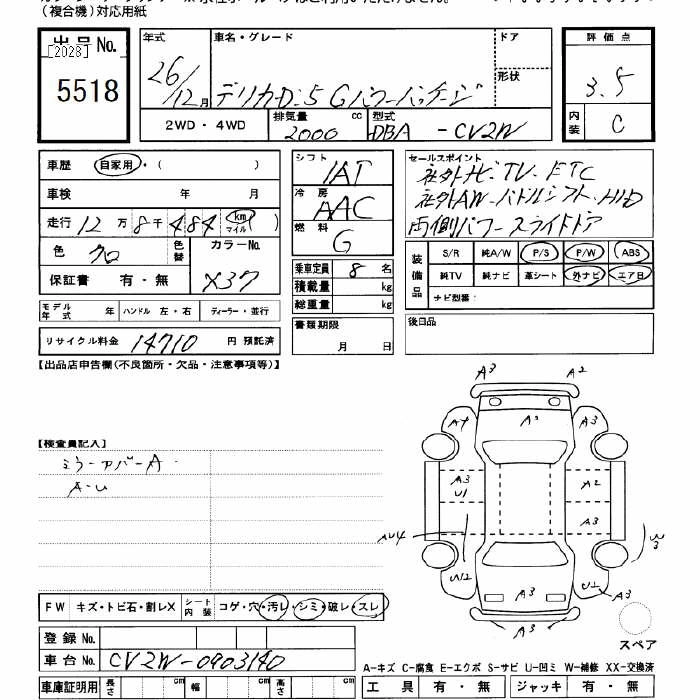 （複合機）対応用紙
出品 No.
[2028]
5518
年式
26/12月
車名・グレード
デリカD:5 Gパワーパッケージ
ドア
形状
評価点
3.5
内装
C
2WD・4WD
排気量 cc
2000
型式
DBA -CV2W
車歴 自家用・( )
車検 年 月
走行 12万 8千 484 km マイル ( )
色 クロ
色替
カラーNo.
X37
保証書 有・無
モデル年式 年 ハンドル 左・右 ディーラー・並行
リサイクル料金 14710 円 預託済
シフト
IAT
冷房
AAC
燃料
G
乗車定員 8 名
積載量 kg
総重量 kg
書類期限
月 日
セールスポイント
社外ナビ・TV・ETC
社外AW・パドルシフト・HID
両側パワースライドドア
装備品
S/R 純A/W P/S P/W ABS
純TV 純ナビ 革シート 外ナビ エアB
ナビ型番：
後日品
【出品店申告欄(不良箇所・欠品・注意事項等)】
【検査員記入】
ミラーアバーA
A-U
A3 A2
A4 A2 A3
A3 A2
U1
A3
AU4 W3
U12 A3 U2 A3
A3
スペア
FW キズ・トビ石・割レX
シート内装 コゲ・穴・汚レ・シミ・破レ・スレ
登録 No.
車台 No. CV2W-0903140
車庫証明用 長さ cm 幅 cm 高さ cm
A-キズ C-腐食 E-エクボ S-サビ U-凹ミ W-補修 XX-交換済
工具 有・無 ジャッキ 有・無